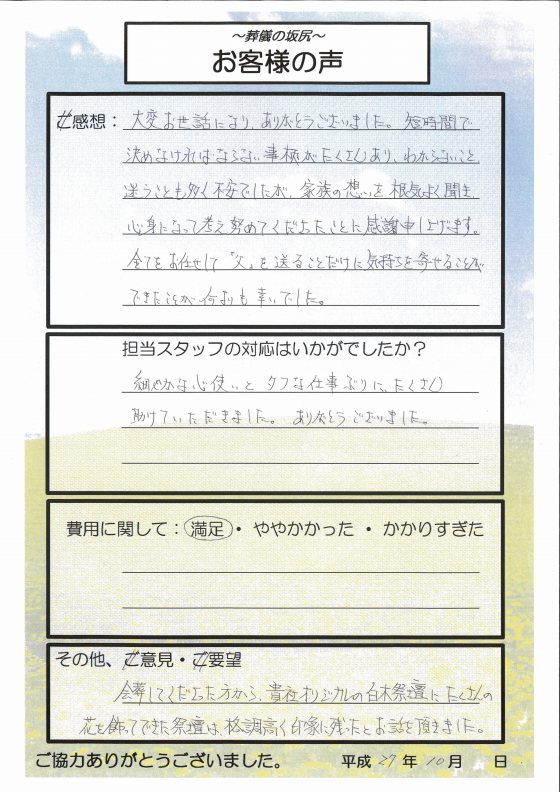 ～葬儀の坂尻～
お客様の声
ご感想：大変お世話になり、ありがとうございました。短時間で
決めなければならない事柄がたくさんあり、わからないこと
迷うことも多く不安でしたが、家族の想いを根気よく聞き、
心身になって考え努めてくださったことに感謝申し上げます。
全てをお任せして「父」を送ることだけに気持ちを寄せることが
できたことが何よりも幸いでした。
担当スタッフの対応はいかがでしたか？
細やかな心使いとタフな仕事ぶりに、たくさん
助けていただきました。ありがとうございました。
費用に関して：満足・ややかかった・かかりすぎた
その他、ご意見・ご要望
会葬してくださった方から、貴社オリジナルの白木祭壇にたくさんの
花を飾ってできた祭壇は、格調高く印象に残ったとお話を頂きました。
ご協力ありがとうございました。 平成27年10月 日